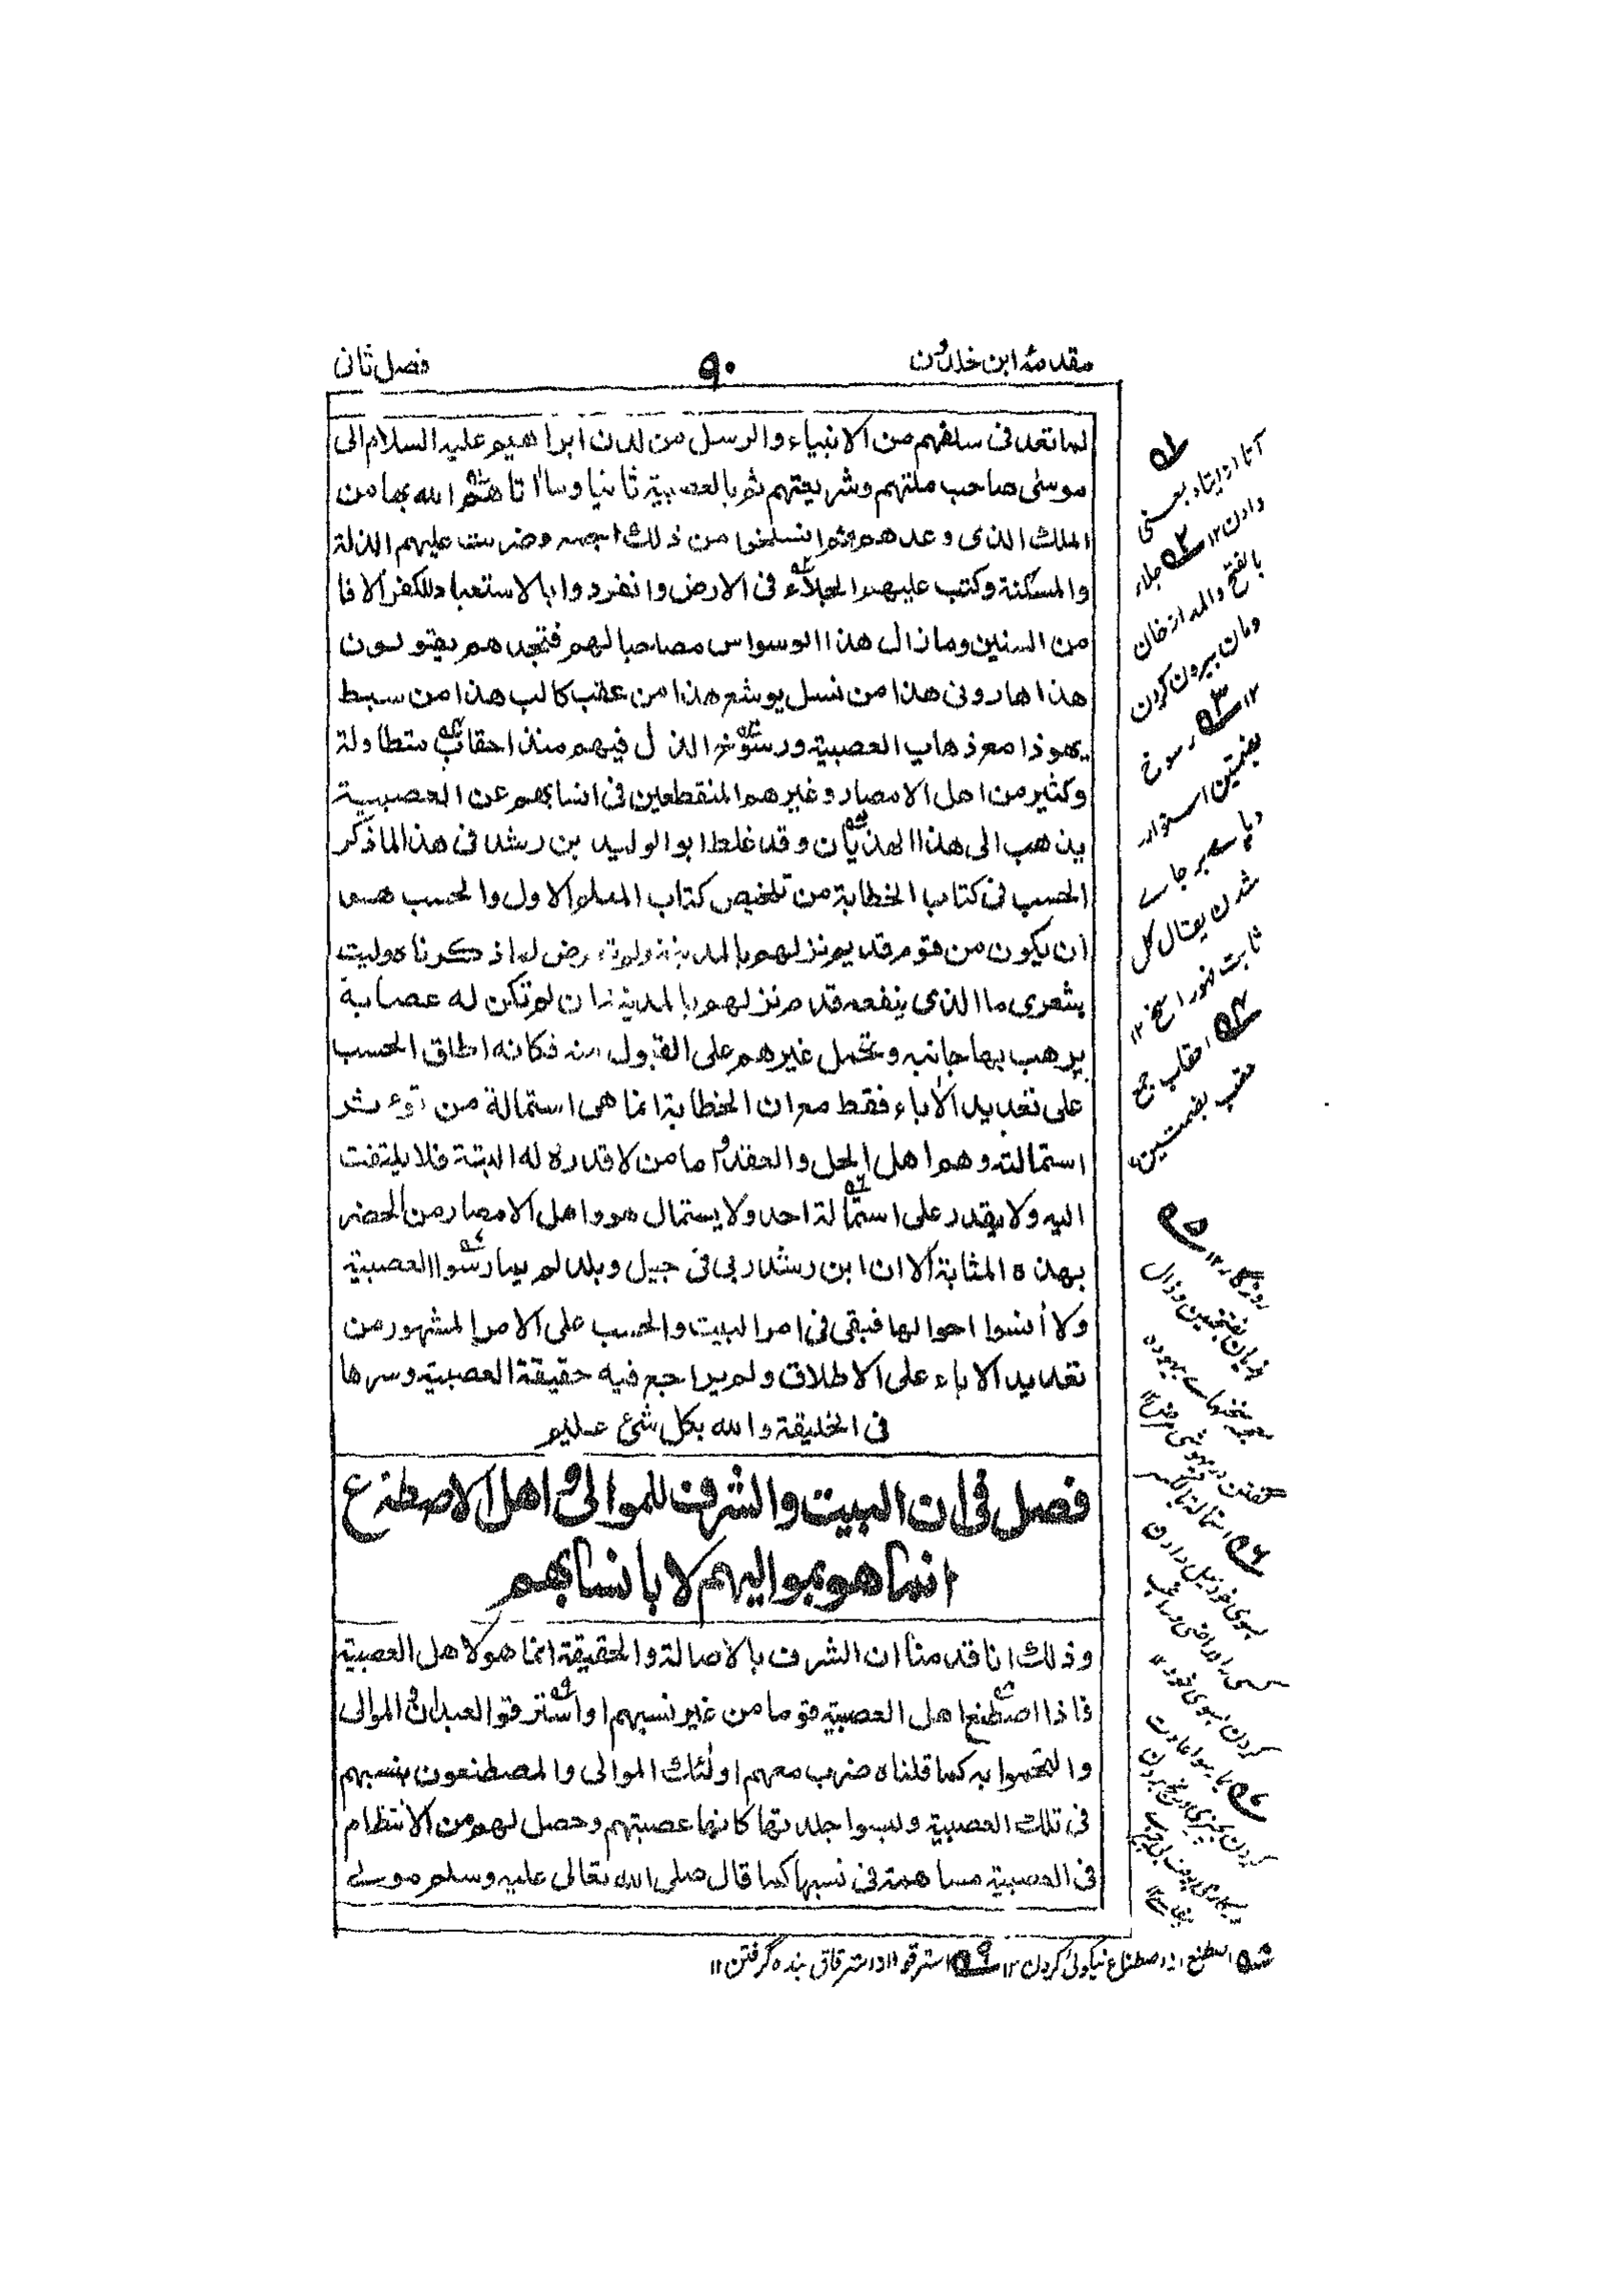 مقدمۂ ابن خلدون
٩٠
فصل ثانی
لما تعد فی سلفهم من الانبیاء والرسل من لدن ابراهیم علیه السلام الی
موسٰی صاحب ملتهم وشریعتهم ثم بالعصبیة ثانیا وما اتاهم الله بها من
الملك الذی وعدهم ثم انسلخوا من ذلك اجمع وضربت علیهم الذلة
والمسکنة وکتب علیهم الجلاء فی الارض وانفردوا بالاستعباد للکفر الافا
من السنین وما زال هذا الوسواس مصاحبا لهم فتجدهم یقولون
هذا هارونی هذا من نسل یوشع هذا من عقب کالب هذا من سبط
یهوذا مع ذهاب العصبیة ورسوخ الذل فیهم منذ احقاب متطاولة
وکثیر من اهل الامصار وغیرهم المنقطعین فی انسابهم عن العصبیة
یذهب الی هذا الهذیان وقد غلط ابو الولید بن رشد فی هذا لما ذکر
الحسب فی کتاب الخطابة من تلخیص کتاب المعلم الاول والحسب هو
ان یکون من قوم قدیم نزلهم بالمدینة ولم یتعرض لما ذکرناه ولیت
شعری ما الذی ینفعه قدم نزلهم بالمدینة ان لم تکن له عصابة
یرهب بها جانبه وتحمل غیرهم علی القبول منه فکانه اطلق الحسب
علی تعدید الاٰباء فقط مع ان الخطابة انما هی استمالة من تؤثر
استمالته وهم اهل الحل والعقد واما من لا قدرة له البتة فلا یلتفت
الیه ولا یقدر علی استمالة احد ولا یستمال هو واهل الامصار من الحضر
بهذه المثابة الا ان ابن رشد ربی فی جیل وبلد لم یمارسوا العصبیة
ولا أنسوا احوالها فبقی فی امر البیت والحسب علی الامر المشهور من
تعدید الاباء علی الاطلاق ولم یراجع فیه حقیقة العصبیة وسرها
فی الخلیقة والله بکل شیٔ علیم
فصل فی ان البیت والشرف للموالی واهل الاصطناع
انما هو بموالیهم لا بانسابهم
وذلك انا قدمنا ان الشرف بالاصالة والحقیقة انما هو لاهل العصبیة
فاذا اصطنع اهل العصبیة قوما من غیر نسبهم او استرقوا العبدان والموالی
والتحموا به کما قلناه ضرب معهم اولٰئك الموالی والمصطنعون بنسبهم
فی تلك العصبیة ولبسوا جلدتها کانها عصبتهم وحصل لهم من الانتظام
فی العصبیة مساهمة فی نسبها کما قال صلی الله تعالی علیه وسلم مولے
۱ آتا از ایتاء بمعنی
دادن ۱۲ ۲ جلاء
بالفتح والمد از خان
ومان بیرون کردن
۱۲ ۳ رسوخ
بضمتین استوار
وپابرجاے
شدن یقال کل
ثابت فهو راسخ ۱۲
۴ احقاب جمع
حقب بضمتین
روزگار ۱۲ ۵
هذیان بفتحتین وذال
معجمه سخنهاے بیهوده
گفتن
۶ استمالة بالکسر
بسوی خود میل دادن
کردن بسوی خود ۱۲
۸ اصطنع از اصطناع نیکوئی کردن ۱۲ ۹ استرقوا از استرقاق بنده گرفتن ۱۲